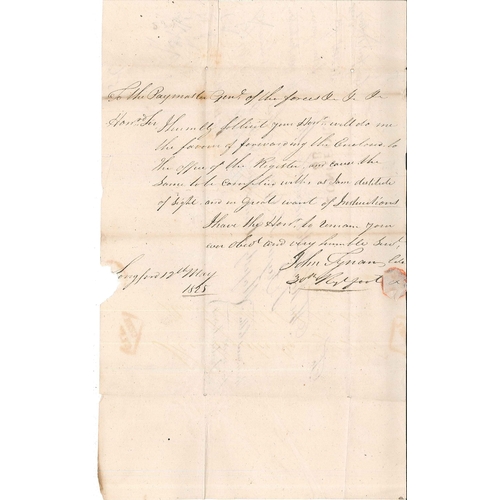 To the Paymaster Genl. of the forces &
Hond. Sir I humbly sollicit your Honr. will do me
the favour of forwarding the Enclosed to
the office of the Register and cause the
Same to be complied with as I am destitute
of Sight and in Great want of Instructions
I have the Honr. to remain your
Obedt. and very humble Servt.
John Tynan
30th Regt foot
Longford 12th May